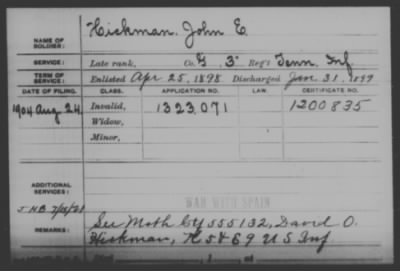 NAME OF SOLDIER: Hickman, John E.
SERVICE: Late rank, Co. G, 3" Reg't Tenn. Inf.
TERM OF SERVICE: Enlisted Apr 25, 1898 Discharged Jan. 31, 1899
DATE OF FILING. CLASS. APPLICATION NO. LAW. CERTIFICATE NO.
1904 Aug 24. Invalid, 1323,071 1200835
Widow,
Minor,
ADDITIONAL SERVICES:
WAR WITH SPAIN
REMARKS: See Moth Ctf 555132, David O.
Hickman, H 5 & 69 U S Inf